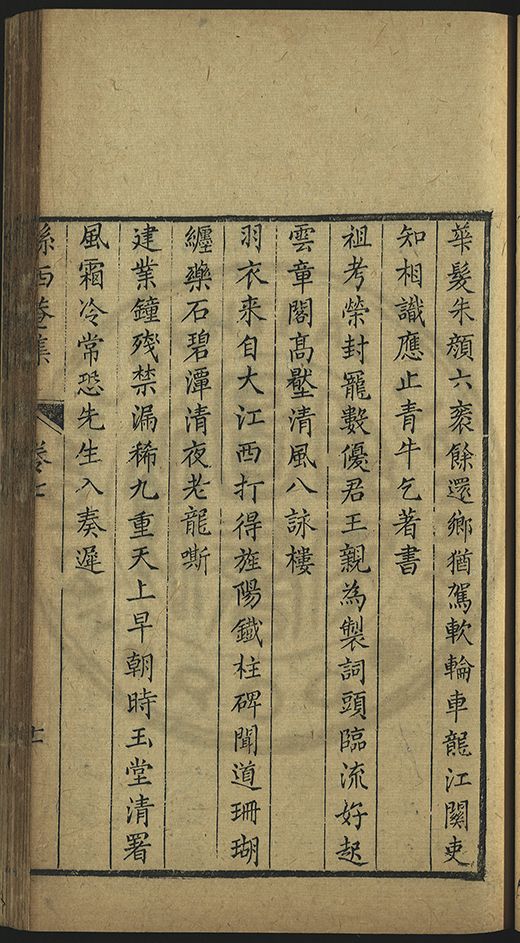 華髮朱顔六袠餘還鄉猶駕軟輪車龍江關吏
知相識應止青牛乞著書
祖考榮封寵數優君王親為製詞頭臨流好起
雲章閣髙壓清風八詠樓
羽衣来自大江西打得旌陽鐵柱碑聞道珊瑚
纏藥石碧潭清夜老龍嘶
建業鐘殘禁漏稀九重天上早朝時玉堂清署
風霜冷常恐先生入奏遲
孫西菴集 卷七 十